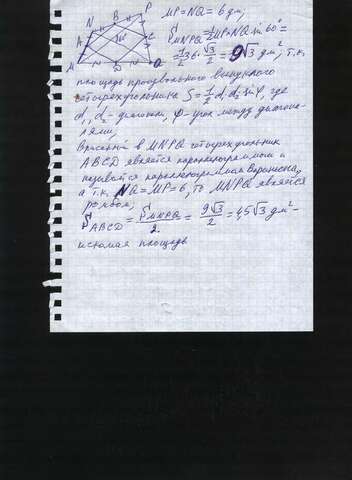 N B P
A 60° C
M D Q
MP=NQ=6 дм,
S MNPQ = 1/2 MP·NQ sin 60° =
= 1/2 · 36 · √3/2 = 9√3 дм², т.к.
площадь произвольного выпуклого
четырехугольника S = 1/2 d₁ d₂ sin φ, где
d₁, d₂ - диагонали, φ - угол между диагона-
лями,
Вписанный в MNPQ четырехугольник
ABCD является параллелограммом и
называется параллелограммом Вариньона,
а т.к. NQ = MP = 6, то MNPQ является
ромбом,
S ABCD = S MNPQ / 2 = 9√3 / 2 = 4,5√3 дм² -
искомая площадь